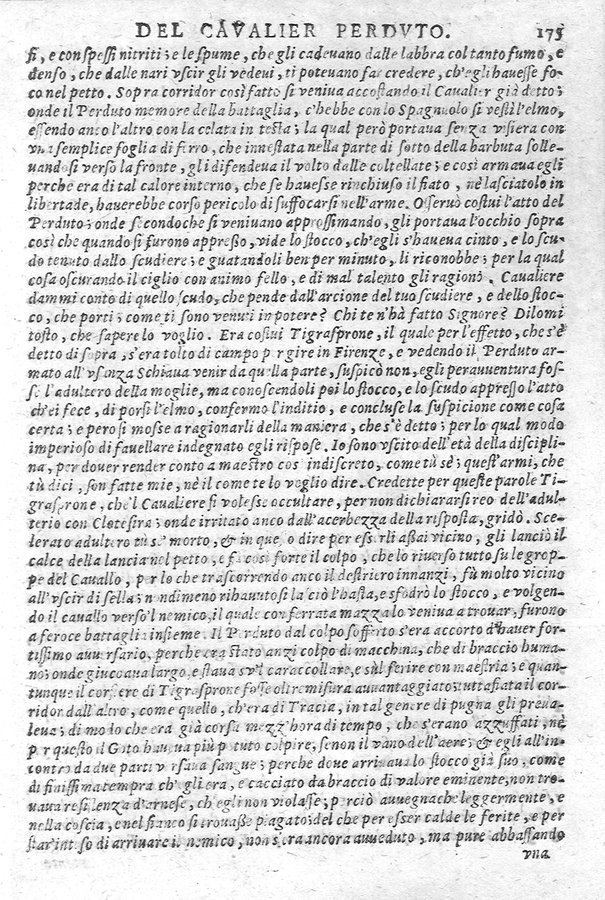 DEL CAVALIER PERDVTO. 175
si, e con spessi nitriti; e le spume, che gli cadevano dalle labbra col tanto fumo, e
denso, che dalle nari vscir gli vedeui, ti potevano far credere, ch'egli hauesse fo-
co nel petto. Sopra corridor così fatto si veniua accostando il Cavalier già detto;
onde il Perduto memore della battaglia, c'hebbe con lo Spagnuolo si vestì l'elmo,
essendo anco l'altro con la celata in testa; la qual però portaua senza visiera con
vna semplice foglia di ferro, che innestata nella parte di sotto della barbuta solle-
uandosi verso la fronte, gli difendeua il volto dalle coltellate; e così armaua egli
perche era di tal calore interno, che se hauesse rinchiuso il fiato, nè lasciatolo in
libertade, hauerebbe corso pericolo di suffocarsi nell'arme. Osseruò costui l'atto del
Perduto; onde secondoche si veniuano approssimando, gli portaua l'occhio sopra
così che quando si furono appresso, vide lo stocco, ch'egli s'haueua cinto, e lo scu-
do tenuto dallo scudiere; e guatandoli ben per minuto, li riconobbe; per la qual
cosa oscurando il ciglio con animo fello, e di mal talento gli ragionò. Cavaliere
dammi conto di quello scudo, che pende dall'arcione del tuo scudiere, e dello stoc-
co, che porti; come ti sono venuti in potere? Chi te n'hà fatto Signore? Dilomi
tosto, che sapere lo voglio. Era costui Tigrasprone, il quale per l'effetto, che s'è
detto di sopra, s'era tolto di campo per gire in Firenze, e vedendo il Perduto ar-
mato all'vsanza Schiaua venir da quella parte, suspicò non, egli perauuentura fos-
se l'adultero della moglie, ma conoscendoli poi lo stocco, e lo scudo appresso l'atto
ch'ei fece, di porsi l'elmo, confermo l'inditio, e concluse la suspicione come cosa
certa; e perosi mosse a ragionarli della maniera, che s'è detto; per lo qual modo
imperioso di fauellare indegnato egli rispose. Io sono vscito dell'età della discipli-
na, per douer render conto a maestro cosi indiscreto, come tù sè; quest'armi, che
tù dici, son fatte mie, nè il come te lo voglio dire. Credette per queste parole Ti-
grasprone, che'l Cavaliere si volesse occultare, per non dichiararsi reo dell'adul-
terio con Clotesira; onde irritato anco dall'acerbezza della risposta, gridò. Sce-
lerato adultero tù se' morto, & in questo dire per esserli assai vicino, gli lanciò il
calce della lancia nel petto, e fù così forte il colpo, che lo riverso tutto su le grop-
pe del Cauallo, per lo che trascorrendo anco il destriero innanzi, fù molto vicino
all'vscir di sella; nondimeno rihauutosi lasciò l'hasta, e sfodrò lo stocco, e volgen-
do il cauallo verso'l nemico, il quale con ferrata mazza lo veniua a trouar, furono
a feroce battaglia insieme. Il Perduto dal colpo sofferto s'era accorto d'hauer for-
tissimo auuersario, perche era stato anzi colpo di macchina, che di braccio huma-
no; onde giucaua largo, e staua sù'l caraccollare, e sùl ferire con maestria; e quan-
tunque il corsiere di Tigrasprone fosse oltremisura auuantaggiato; tuttafiata il cor-
ridor dall'altro, come quello, ch'era di Tracia, in tal genere di pugna gli preua-
leua; di modo che era già corsa mezz'hora di tempo, che s'erano azzuffati, nè
per questo il Goto haueua più potuto colpire, se non il vano dell'aere; & egli all'in-
contro da due parti versaua sangue; perche doue arriuaua lo stocco già suo, come
di finissima tempra ch'egli era, e cacciato da braccio di valore eminente, non tro-
uaua resistenza d'arnese, ch'egli non violasse; perciò auuegnache leggermente, e
nella coscia, e nel fianco si trouasse piagato; del che per esser calde le ferite, e per
star inteso di arriuare il nemico, non s'era ancora auueduto, ma pure abbassando
vna